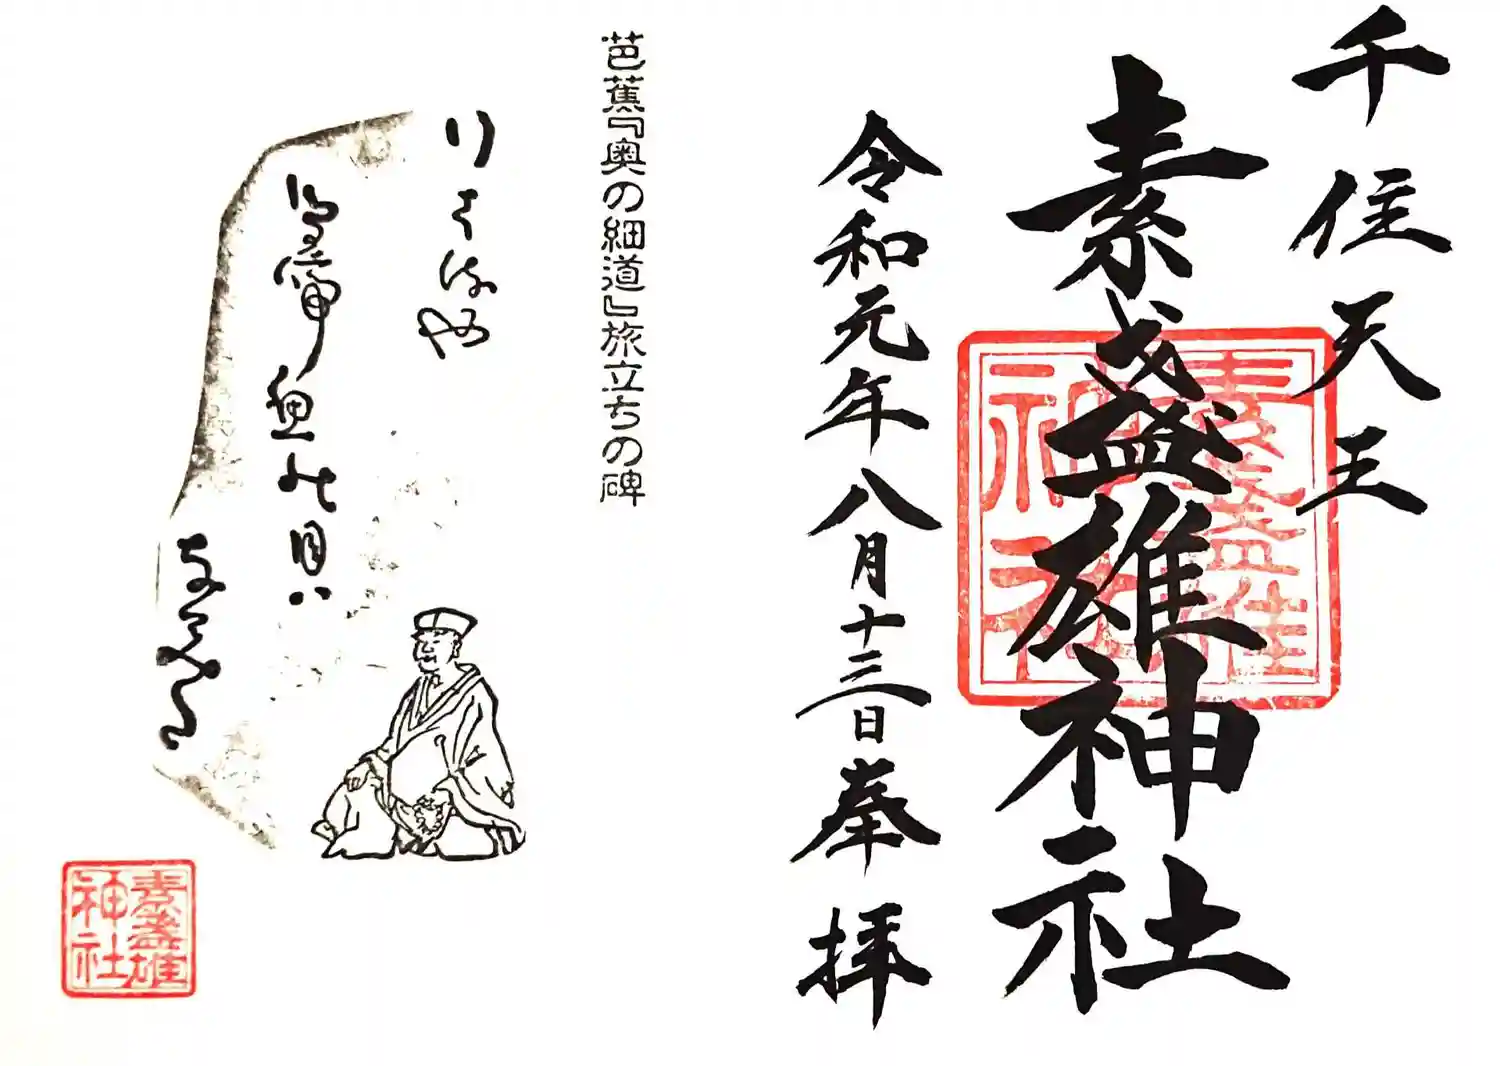 千住天王
素盞雄神社
素盞雄神社
令和元年八月十三日奉拝
芭蕉『奥の細道』旅立ちの碑
行はるや
鳥啼魚の目ハ
なミた
素盞雄神社